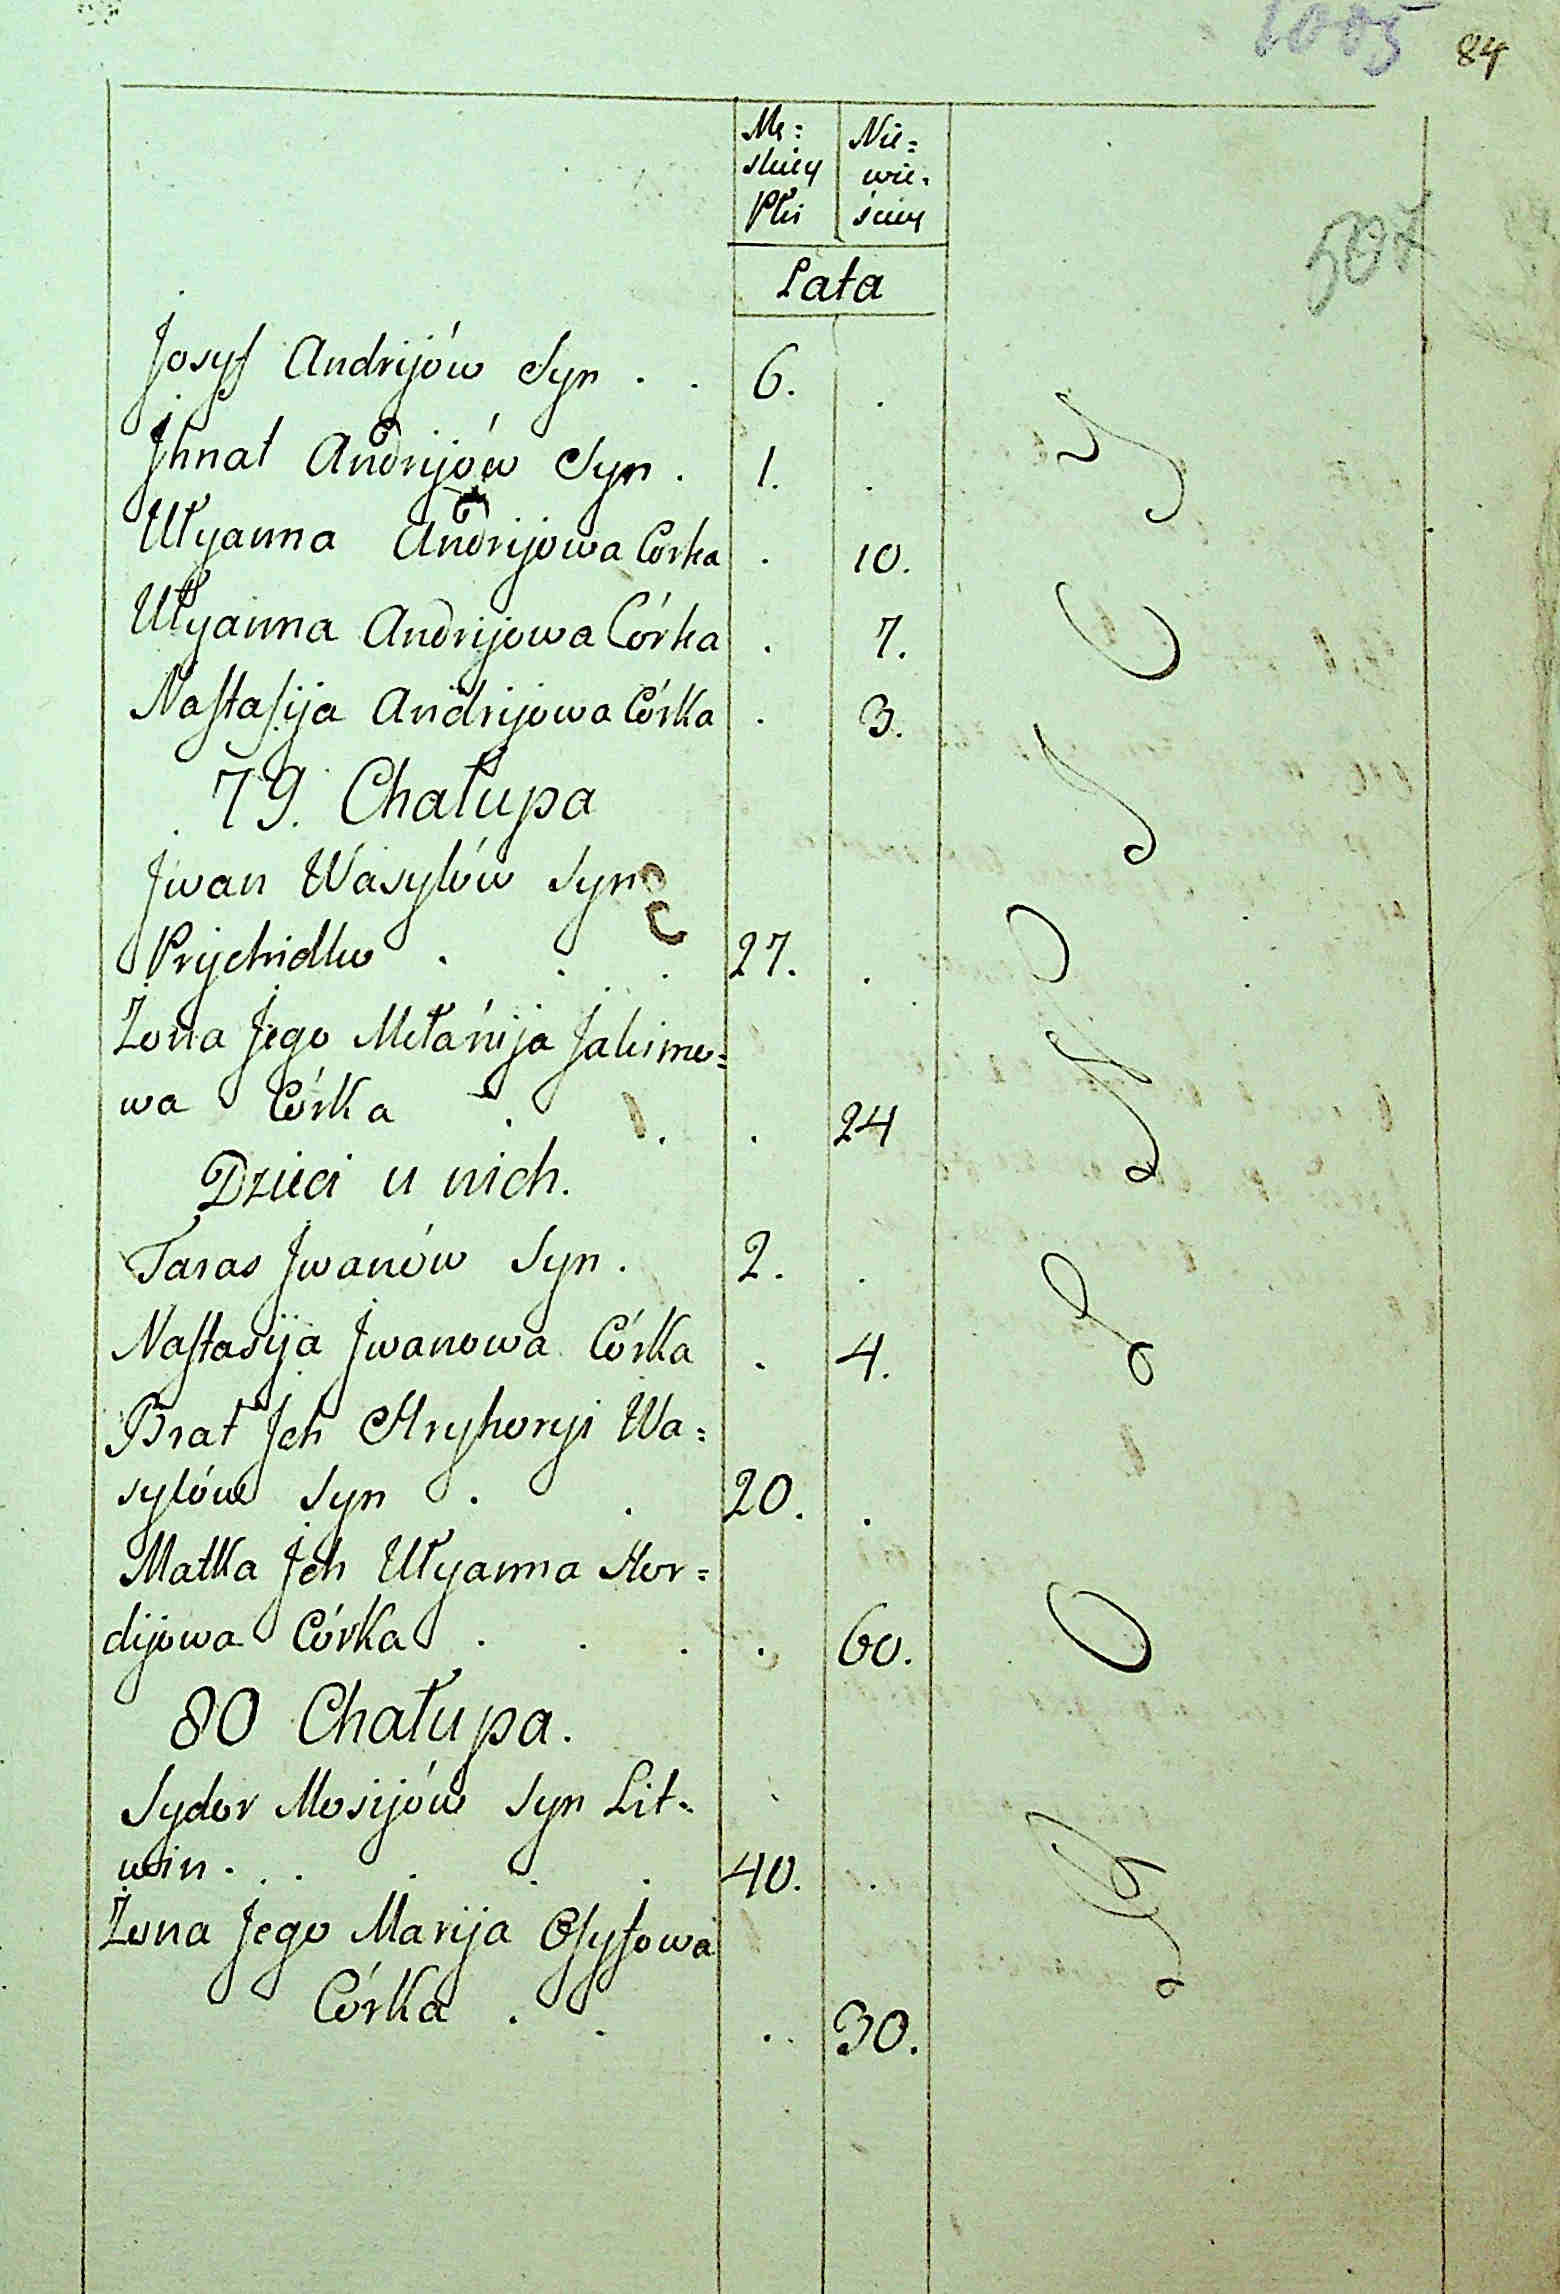 1005 84
Mę= Nie=
skiey wie=
Płci ściey
507
Lata
Josyf Andrijów Syn . . 6. .
Jhnat Andrijów Syn . 1. .
Ułyanna Andrijowa Corka . 10.
Ułyanna Andrijowa Córka . 7.
Nastasija Andrijowa Córka . 3.
79. Chałupa
Jwan Wasylów Syn
Prychidko . . . 27. .
Żona Jego Mełanija Jakimo=
wa Córka . . . 24
Dzieci u nich.
Taras Jwanów Syn . 2. .
Nastasija Jwanowa Córka . 4.
Brat Jch Hryhoryi Wa=
sylów Syn . . 20. .
Matka Jch Ułyanna Hor=
dijowa Córka . . . . 60.
80 Chałupa.
Sydor Mosijów Syn Lit=
win . . . . . . 40. .
Żona Jego Marija Osyfowa
Córka . . . . 30.